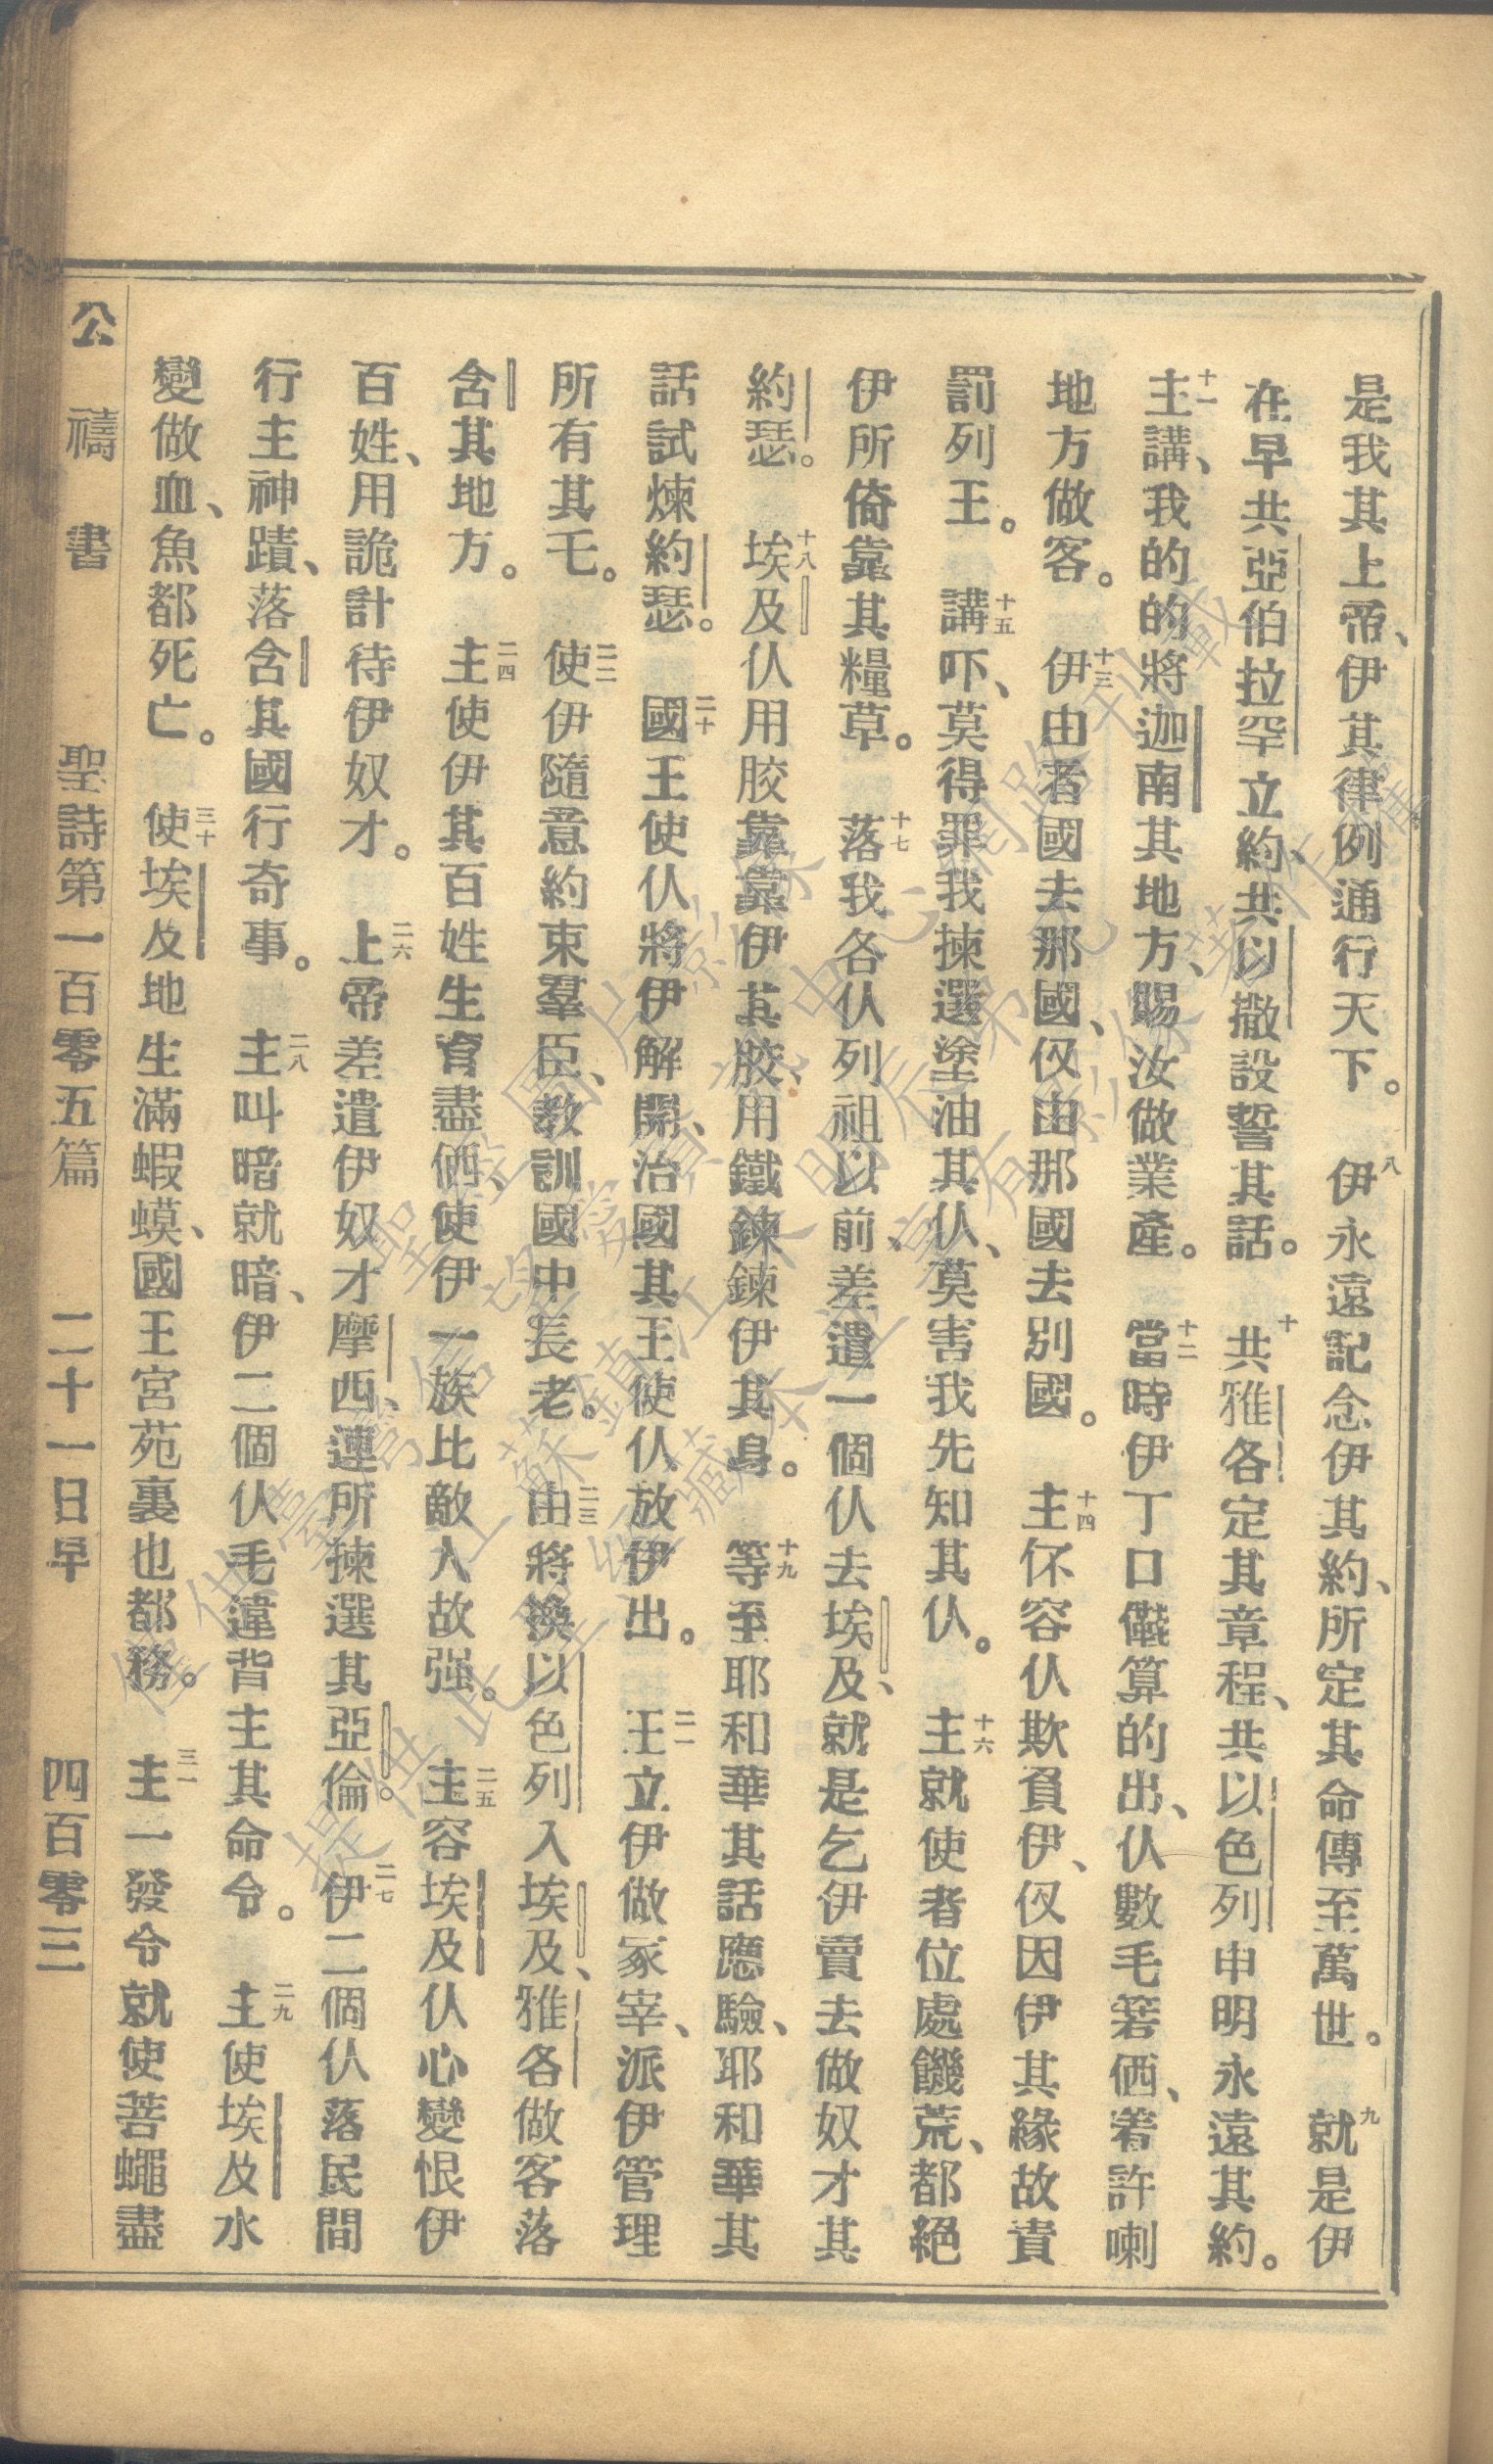 是我其上帝、伊其律例通行天下。八伊永遠記念伊其約、所定其命傳至萬世。九就是伊
在早共亞伯拉罕立約、共以撒設誓其話。十共雅各定其章程、共以色列申明永遠其約。
十一主講、我的的將迦南其地方、賜汝做業產。十二當時伊丁口儎算的出、仈數毛箬㑚、着許喇
地方做客。十三伊由者國去那國、仅由那國去別國。十四主伓容仈欺負伊、仅因伊其緣故責
罰列王。十五講吓、莫得罪我揀選塗油其仈、莫害我先知其仈。十六主就使者位處饑荒、都絕
伊所倚靠其糧草。十七落我各仈列祖以前、差遣一個仈去埃及、就是乞伊賣去做奴才其
約瑟。十八埃及仈用胶靠靠伊其胶、用鐵鍊鍊伊其身。十九等至耶和華其話應驗、耶和華其
話試煉約瑟。二十國王使仈將伊解開、治國其王使仈放伊出。二一王立伊做冢宰、派伊管理
所有其乇。二二使伊隨意約束羣臣、教訓國中長老。二三由將換以色列入埃及、雅各做客落
含其地方。二四主使伊其百姓生育盡㑚、使伊一族比敵人故强。二五主容埃及仈心變恨伊
百姓、用詭計待伊奴才。二六上帝差遣伊奴才摩西、連所揀選其亞倫。二七伊二個仈落民間
行主神蹟、落含其國行奇事。二八主叫暗就暗、伊二個仈毛違背主其命令。二九主使埃及水
變做血、魚都死亡。三十使埃及地生滿蝦蟆、國王宮苑裏也都務。三一主一發令就使菩蠅盡
公禱書 聖詩第一百零五篇 二十一日早 四百零三